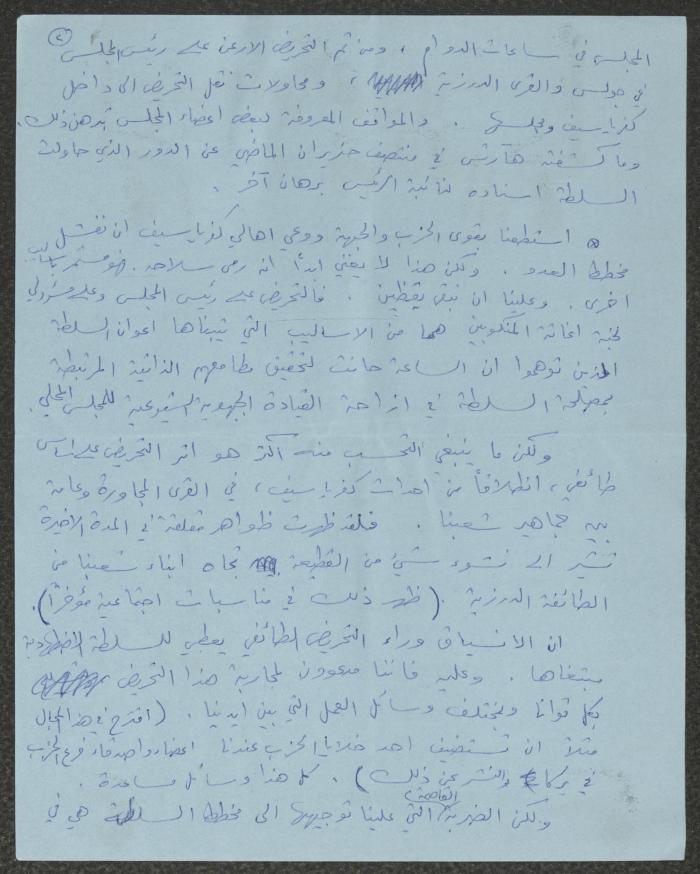 ٢
المجلس في ساعات الدوام ، ومن ثم التحريض الارعن على رئيس المجلس
في جولس والقرى الدرزية ، ومحاولات نقل التحريض الى داخل
كفرياسيف ومجلسها . والمواقف المعروفة لبعض اعضاء المجلس تبرهن ذلك .
وما كشفته هآرتس في منتصف حزيران الماضي عن الدور الذي حاولت
السلطة اسناده لنائبة الرئيس برهان آخر .
استطعنا بقوى الحزب والجبهة ووعي اهالي كفرياسيف ان نفشل
مخطط العدو . ولكن هذا لا يعني ابداً انه رمى سلاحه . فهو مستمر باساليب
اخرى . وعلينا ان نبقى يقظين . فالتحريض على رئيس المجلس وعلى مسؤولي
لجنة اغاثة المنكوبين هما من الاساليب التي تبناها اعوان السلطة
الذين توهموا ان الساعة حانت لتحقيق مطامعهم الذاتية المرتبطة
بمصلحة السلطة في ازاحة القيادة الجبهوية الشيوعية للمجلس المحلي .
ولكن ما ينبغي التحسب منه اكثر هو اثر التحريض على اساس
طائفي ، انطلاقاً من احداث كفرياسيف ، في القرى المجاورة وعامة
بين جماهير شعبنا . فلقد ظهرت ظواهر مقلقة في المدة الاخيرة
تشير الى نشوء شيئ من القطيعة تجاه ابناء شعبنا من
الطائفة الدرزية . ( ظهر ذلك في مناسبات اجتماعية مؤخراً ) .
ان الانسياق وراء التحريض الطائفي يعطي للسلطة الاضطهادية
مبتغاها . وعليه فاننا مدعوون لمحاربة هذا التحريض
بكل قوانا وبمختلف وسائل العمل التي بين ايدينا . ( اقترح في هذا المجال
مثلاً ان تستضيف احد خلايا الحزب عندنا اعضاء واصدقاء فرع الحزب
في يركا والنشر عن ذلك ) . كل هذا وسائل مساعدة .
ولكن الضربة القاصمة التي علينا توجيهها الى مخطط السلطة هي في